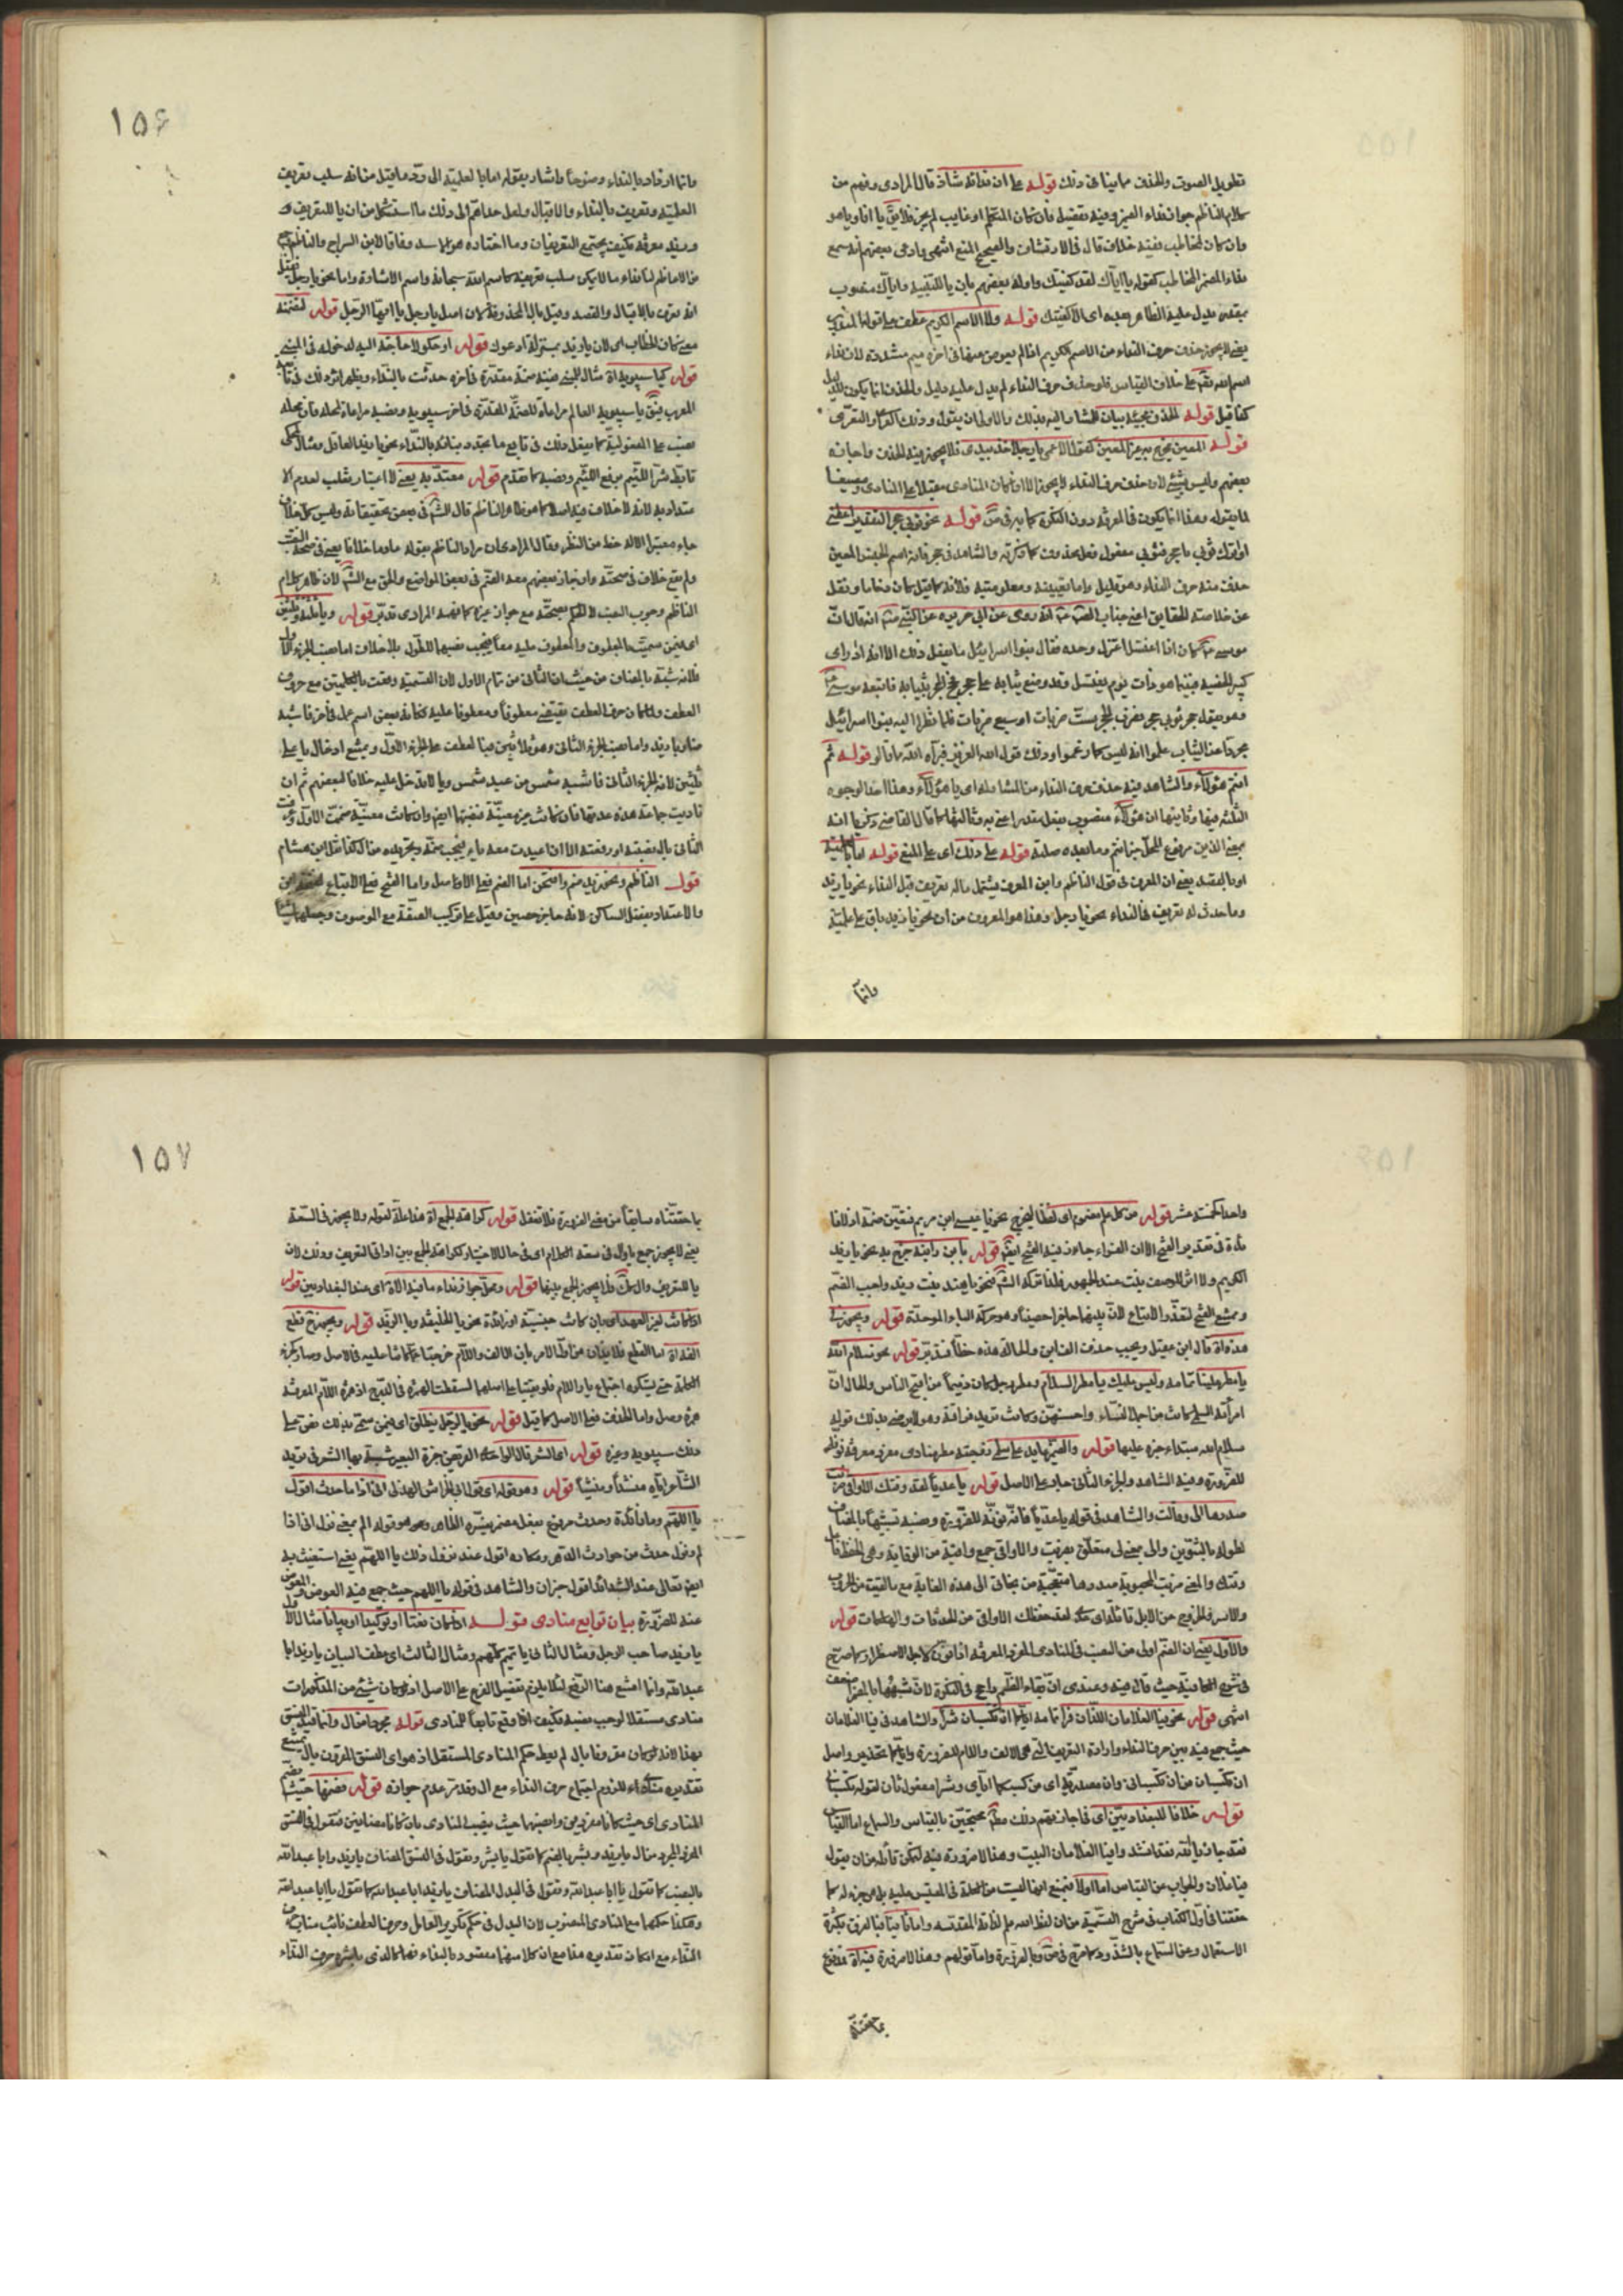 تطويل الصوت والحذف مما ينافى ذلك قوله على ان نداءه شاذ قال المرادى وفهم من
كلام الناظم جواز نداء الضمير وفيه تفصيل فان كان لمتكلم او غايب لم يجز فلا يق يا انا ويا هو
وان كان لمخاطب ففيه خلاف قال فى الارتشاف والصحيح المنع انتهى وادعى بعضهم انه سمع
نداء المضمر المخاطب كقوله يا اياك لقد كفيتك واوله بعضهم بان يا للتنبيه واياك منصوب
بمقدر يدل عليه الظاهر بعده اى اياك كفيتك قوله ولا الاسم الكريم عطف على قوله المندوب
يعنى لا يجوز حذف حرف النداء من الاسم الكريم اذا لم يعوض عنها فى اخره ميم مشددة لان نداء
اسم الله تع على خلاف القياس فلو حذف حرف النداء لم يدل عليه دليل والحذف انما يكون للدليل
كذا قيل قوله
قوله المعين يخرج به غير المعين كقول الاعمى يا رجلا خذ بيدى فلا يجوز فيه الحذف واجازه
بعضهم وليس بشئ لان حذف حرف النداء لا يجوز الا اذا كان المنادى مقبلا على المنادى ومصغيا
لما يقوله وهذا انما يكون فى المعرفة دون النكرة كما مر فى قوله نحو ثوبى حجر التقدير اعطنى
او اترك ثوبى يا حجر فثوبى مفعول فعل محذوف كما ذكرته والشاهد فى حجر فانه اسم الجنس المعين
حذف منه حرف النداء وهو قليل واما تعيينه ومعلوميته فلانه كما قيل كان رخاما ونقل
موسى كان اذا اغتسل اعتزل وحده فقال بنوا اسرائيل ما يفعل ذلك الا انه اذر اى
كبير الخصيه فبينما هو ذات يوم يغتسل وقد وضع ثيابه على حجر فخ الحجر بثيابه فاتبعه موسى
وهو يقول حجر ثوبى حجر فضرب الحجر ست ضربات او سبع ضربات فلما نظر اليه بنوا اسرائيل
مجردا عن الثياب علموا انه ليس كما زعموا وذلك قول الله العزيز فبراه الله مما قالوا قوله ثم
انتم هؤلاء والشاهد فيه حذف حرف النداء من المشار له اى يا هؤلاء وهذا احد الوجوه
الثلثه فيها وثانيها ان هؤلاء منصوب بفعل مقدر اعنى به وثالثها كما قال القاضى زكريا انه
بمعنى الذين مرفوع المحل خبر انتم وما بعده صلته قوله على ذلك اى على المنع قوله اما بالعلمية
او بالقصد يعنى ان المعرف فى قول الناظم وابن المعرف يشتمل ما له تعريف قبل النداء نحو يا زيد
وما حدث له تعريف فى النداء نحو يا رجل وهذا هو المعروف من ان نحو يا زيد باق على علميته
وانما
١٥٦
وانما ازداد بالنداء وضوحا واشار بقوله اما بالعلمية الى رد ما قيل من انه سلب تعريف
العلمية وتعريف بالنداء والاقبال ولعل حداهم الى ذلك ما استشكل من ان يا للتعريف و
وزيد معرفة فكيف يجتمع التعريفان وما اختاره هو المسدد وفاقا لابن السراج والناظم
من الاعاظم لنا نداء ما لا يمكن سلب تعريفه كاسم الله سبحانه واسم الاشارة واما نحو يا رجل فقيل
انه تعرف بالاقبال والقصد وقيل بال المحذوفة وكان اصل يا رجل يا ايها الرجل قوله لتضمنه
معنى كان الخطاب اى لان يا زيد بمنزلة ادعوك قوله او حكوا لا حاجة اليه لدخوله فى المبنى
قوله كيا سيبويه اه مثال للمبنى ففيه ضمة مقدرة فى اخره حدثت بالنداء ويظهر اثر ذلك فى تابعه
المعرب فيق يا سيبويه العالم مراعاة للضمة المقدرة فى اخر سيبويه ونصبه مراعاة لمحله فان محله
نصب على المفعولية كما يفعل ذلك فى تابع ما تجدد بناءه بالنداء نحو يا زيد العاقل ومثال المحكى
تابط شرا اللئيم برفع اللئيم ونصبه كما تقدم قوله معتد به يعنى لا اعتبار بثعلب لعدم الا
عتداد به لانه لا خلاف فيه اصلا كما هو ظاهر الناظم قال الش فى بعض تحقيقاته وليس كل خلاف
جاء معتبرا الا له حظ من النظر وقال المرادى ان مراد الناظم بقوله عادما خلافا يعنى فى صحة النصب
ولم يقع خلاف فى صحته وان اجاز بعضهم معه الضم فى بعض المواضع والحق مع الش لان ظاهر كلام
الناظم وجوب النصب لا الحكم بصحته مع جواز غيره كما فهمه المرادى تدبر قوله ويا ثلثة وثلثين
اى فيمن سميته بالمعطوف والمعطوف عليه معا فيجب نصبهما للطول بلا خلاف اما نصب الجزء الاول
فلانه شبه بالمضاف من حيث ان الثانى من تمام الاول لان التسمية وقعت بالكلمتين مع حروف
العطف ولما كان حرف العطف يقتضى معطوفا ومعطوفا عليه فكانه بعض اسم عمل فى اخر فاشبه
ضاربا زيد واما نصب الجزء الثانى وهو ثلاثين هنا لعطف على الجزء الاول ويمتنع ادخال يا على
ثلثين لانه الجزء الثانى فاشبه شمس من عبد شمس ويا لا تدخل عليه خلافا لبعضهم ثم ان
ناديت جماعة هذه عدتها فان كانت غير معينة فنصبها ايض وان كانت معينة ضممت الاول وعرفت
الثانى بال ونصبته او رفعته الا ان اعيدت معه يا فيجب ضمه وتجريده من ال كذا نقل ابن هشام
قوله الناظم ونحو زيد ضم وافتحن اما الضم فعلى الاصل واما الفتح فعلى الاتباع
والاعتداد بفصل الساكن لانه حاجز غير حصين وقيل على تركيب الصفة مع الموصوف وجعلهما شيئا
واحدا كخمسة عشر قوله من كل علم مضموم اى لفظا ليخرج نحو يا عيسى ابن مريم فتعين ضمه اذ لا فا
ئدة فى تقدير الفتح الا ان الفراء جاوز فيه الفتح ايض قوله بابن وابنه خرج به نحو يا زيد
الكريم ولا اثر للوصف ببنت عند الجمهور فلذا تركه الش فنحو يا هند بنت زيد واجب الضم
ويمتنع الفتح لتعذر الاتباع لان بينهما حاجزا حصينا وهو حركة الباء الموحدة قوله ويجوز فى
هذه اه قال ابن عقيل ويجب حذف الف ابن والحالة هذه خطا فتدبر قوله نحو سلام الله
يا مطر علينا تمامه وليس عليك يا مطر السلام ومطر رجل كان دميما من اقبح الناس والحال ان
امراته السلمى كانت من اجمل النساء واحسنهن وكانت تريد فراقه وهو لا يرضى بذلك قوله
سلام الله مبتداء خبره عليها قوله
للضرورة وفيه الشاهد والجزء الثانى جاء على الاصل قوله يا عديا لقد وقتك الاواقى ضربت
صدرها الى وقالت والشاهد فى قوله يا عديا فانه نونه للضرورة ونصبه تشبيها بالمضاف
لطوله بالتنوين والى بمعنى لى متعلق بضربت والاواقى جمع واقية من الوقاية وهى الحفظ فاعل
وقتك والمعنى ضربت المحبوبة صدرها متعجبة من نجاتى الى هذه الغاية مع ما لقيت من الحروب
والاسر والخروج عن الابل قائلة اى لقد حفظك الاواقى من الحدثات والهلكات قوله
والاول يعنى ان الضم اولى من النصب فى المنادى المفرد المعرفة اذا نون لاجل الاضطرار كما صرح
فى شرح الكافية حيث قال فيه وعندى ان بقاء الضم راجح فى العلم لان شبهها بالمضمر اضعف
انتهى قوله نحو فيا الغلامان اللذان فرا تمامه اياكما ان تكسبان شرا والشاهد فى فيا الغلامان
حيث جمع فيه بين حرف النداء واداة التعريف التى هى الالف واللام للضرورة واياكما تحذير واصل
ان تكسبان من ان تكسبانى وان مصدرية اى من كسبكما اياى وشرا مفعول ثان لقوله تكسبانى
قوله خلافا للبغداديين اى فى اجازتهم ذلك مط محتجين بالقياس والسماع اما القياس
فقد جاز يا الله فقد انشد وافيا الغلامان البيت وهذا لا ضرورة فيه لتمكن قائله من ان يقول
فيا غلامان والجواب عن القياس اما اولا فبمنع انها ليست من الكلمة فى المقيس عليه بل هى جزء له كما
حققنا فى اول الكتاب فى شرح التسمية من ان لفظ الله علم لذاته المقدسه واما ثانيا فبالفرق بكثرة
الاستعمال وعن السماع بالشذوذ كما صرح فى ص وبالضرورة واما قولهم وهذا لا ضرورة فيه اه مدفوع
بما حققناه
١٥٧
بما حققناه سابقا من معنى الضرورة فلا تغفل قوله كراهة الجمع اه هذا علة لقوله ولا يجوز فى السعة
يعنى لا يجوز جمع يا وال فى سعة الكلام اى فى حال الاختيار لكراهة الجمع بين اداتى التعريف وذلك لان
يا للتعريف وال كذلك فلا يجوز الجمع بينهما قوله ومحل جواز نداء ما فيه ال اه اى عند البغداديين قوله
اذا كانت لغير العهد اى بان كانت جنسية او زائدة نحو يا الخليفة ويا الوليد قوله ويجوز ح قطع
الف ال اه اما القطع فلايذان من اول الامر بان الالف واللام خرجتا عما كانتا عليه فى الاصل وصارتا كجزء
الكلمة حتى يستكره اجتماع يا واللام فلو بقيتا على اصلهما لسقطت الهمزة فى الدرج اذ همزة اللام المعرفة
همزة وصل واما الحذف فعلى الاصل كما قيل قوله نحو يا الرجل ينطلق اى فيمن سمى بذلك نص على
ذلك سيبويه وغيره قوله
الشاعر اياه منشدا ومنشيا قوله وهو قوله اى قول ابى خراش الهذلى انى اذا ما حدث اقول
يا اللهم وما زائدة وحدث مرفوع بفعل مضمر يفسره الظاهر وهو قوله الم بمعنى نزل انى اذا
لم ونزل حدث من حوادث الدهر ومكاره اقول عند نزول ذلك يا اللهم يعنى استغيث به
ايض تعالى عند الشدائد اقول خبر ان والشاهد فى قوله يا اللهم حيث جمع فيه العوض والمعوض
عنه للضرورة بيان توابع منادى قوله اذا كان نعتا او توكيدا او بيانا مثال الاول
يا زيد صاحب الرجل ومثال الثانى يا تميم كلهم ومثال الثالث اى عطف البيان يا زيد ابا
عبد الله وانما امتنع هنا الرفع لئلا يلزم تفضيل الفرع على الاصل اذ لو كان شئ من المذكورات
منادى مستقلا لوجب نصبه فكيف اذا وقع تابعا للمنادى قوله مجردا من ال وانما قيد النسق
بهذا لانه لو كان مقرونا بال لم يعط حكم المنادى المستقل اذ هو اى النسق المقرون بال يمتنع
تقدير حرف النداء للزوم اجتماع حرف النداء مع ال وقد مر عدم جوازه قوله فضمهما حيث يضم
المنادى اى حيث كانا مفردين وانصبهما حيث ينصب المنادى بان كانا مضافين فتقول فى النسق
المفرد المجرد من ال يا زيد وبشر بالضم كما تقول يا بشر وتقول فى النسق المضاف يا زيد وابا عبد الله
بالنصب كما تقول يا ابا عبد الله وتقول فى البدل المضاف يا زيد ابا عبد الله كما تقول يا ابا عبد الله
وهكذا حكمهما مع المنادى المنصوب لان البدل فى حكم تكرير العامل وحرف العطف نائب مناب حرف
النداء مع امكان تقديره هنا مع ان كلا منهما مقصود بالنداء فهما كالذى باشره حرف النداء